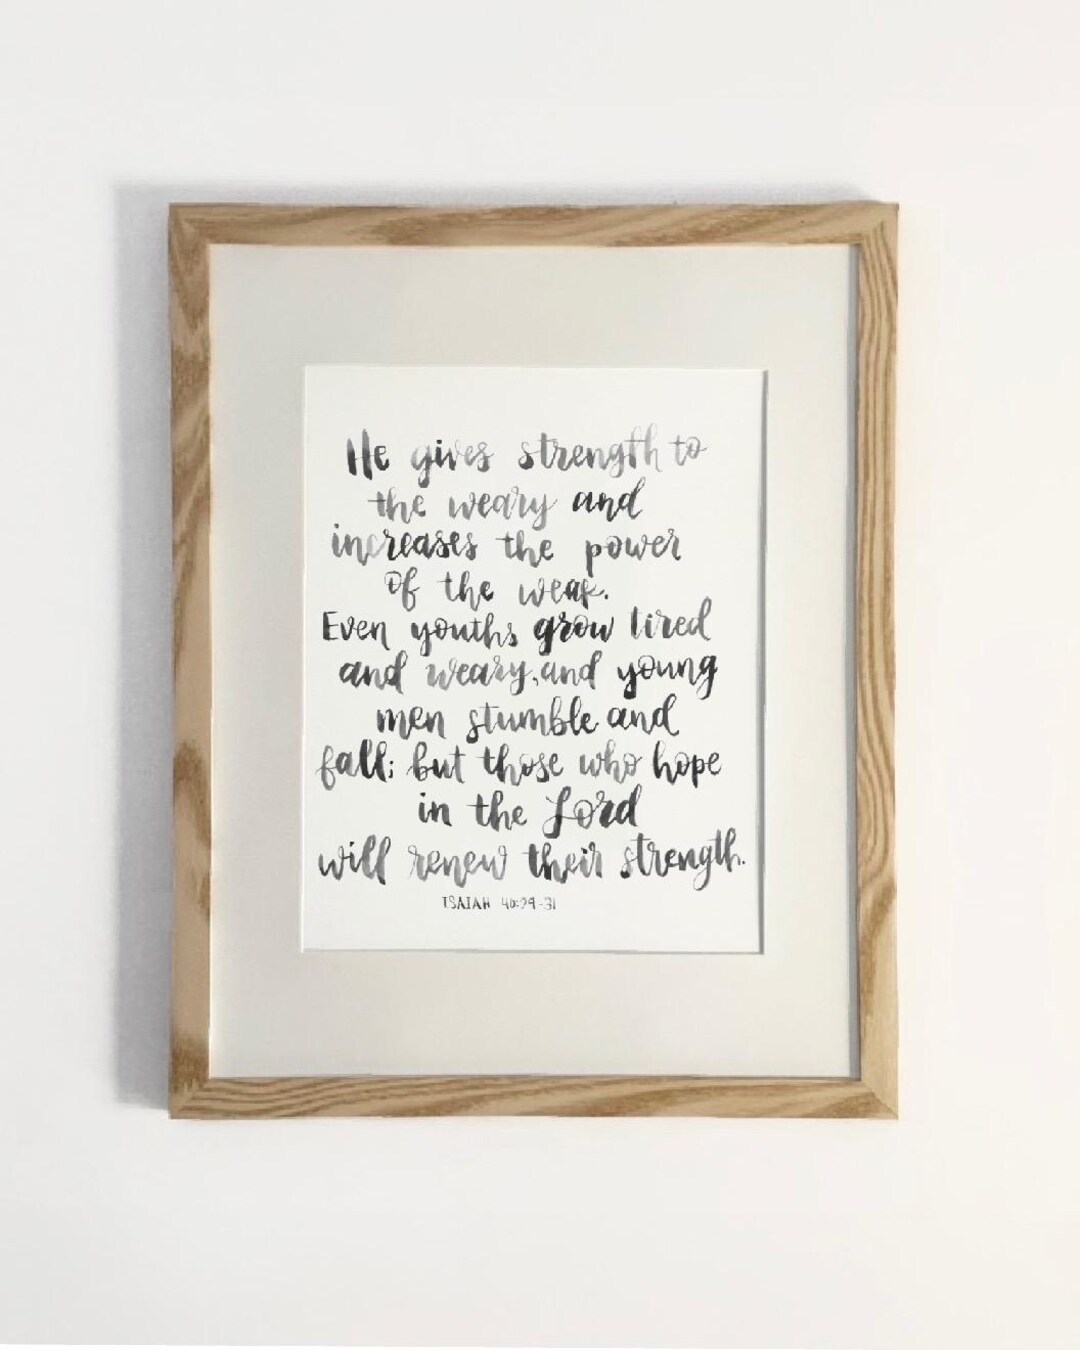 He gives strength to
the weary and
increases the power
of the weak.
Even youths grow tired
and weary, and young
men stumble and
fall; but those who hope
in the Lord
will renew their strength.
ISAIAH 40:29-31